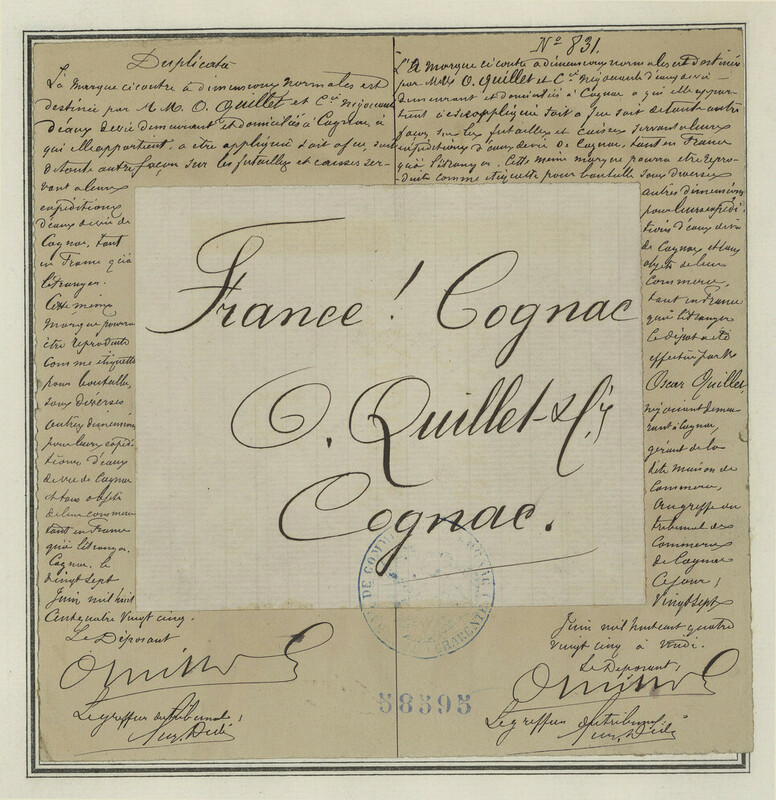 Duplicata
La marque ci contre à dimensions normales est
destinée par M.M. O. Quillet et Cie négociants
d'eaux de vie demeurant et domiciliés à Cognac, à
qui elle appartient, a être appliqué soit a feu soit
de toute autre façon sur les futailles et caisses ser-
vant a leurs
expéditions
d'eaux de vie de
Cognac, tant
en France qu'à
l'étranger.
Cette même
marque pourra
être reproduite
comme étiquette
pour bouteille,
sous diverses
autres dimensions
pour leurs expédi
tions d'eaux
de vie de Cognac
et tous objets
de leur commerce
tant en France
qu'à l'étranger.
Cognac, le
vingt sept
Juin mil huit
cent quatre vingt cinq.
Le Déposant
Le greffier du tribunal,
No 831.
La marque ci contre à dimensions normales est destinée
par MMrs O. Quillet et Cie négociants d'eaux de vie
demeurant et domiciliés à Cognac a qui elle appar
tient à être appliqué soit a feu soit de toute autre
façon sur les futailles et caisses servant a leurs
expéditions d'eaux de vie de Cognac, tant en France
qu'à l'étranger. Cette même marque pourra être repro-
duite comme étiquette pour bouteille sous diverses
autres dimensions
pour leurs expédi
tions d'eaux de vie
de Cognac et tous
objets de leur
commerce,
tant en France
qu'à l'étranger
Le dépôt a été
effectué par Mr
Oscar Quillet,
négociant demeu-
rant à Cognac,
gérant de la
dite maison de
commerce,
au greffe du
tribunal de
Commerce
de Cognac
Ce jour,
vingt sept
Juin mil huit cent quatre
vingt cinq à midi.
Le Déposant,
Le greffier du tribunal
France ! Cognac
O. Quillet & Cie
Cognac.
DE COMM
CHARENTE
58595